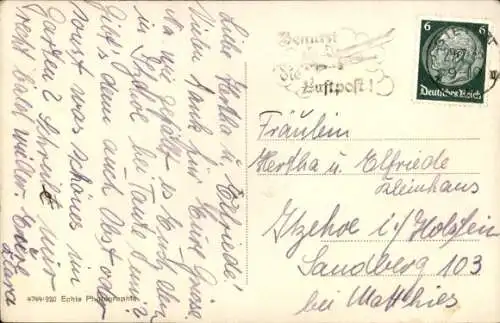 Liebe Hertha u. Elfriede!
Vielen Dank für Eure Grüsse.
Na wie gefällt es Euch denn
in Itzehoe bei Tante
Gibt's denn auch Obst oder
sonst was schönes im
Garten? Schreibt mir
recht bald wieder. Eure
Klara
4744/920 Echte Photographie
Benutzt
die
Luftpost!
6 6
Deutsches Reich
Fräulein
Hertha u. Elfriede
Kleinhaus
Itzehoe i/Holstein
Sandberg 103
bei Matthies